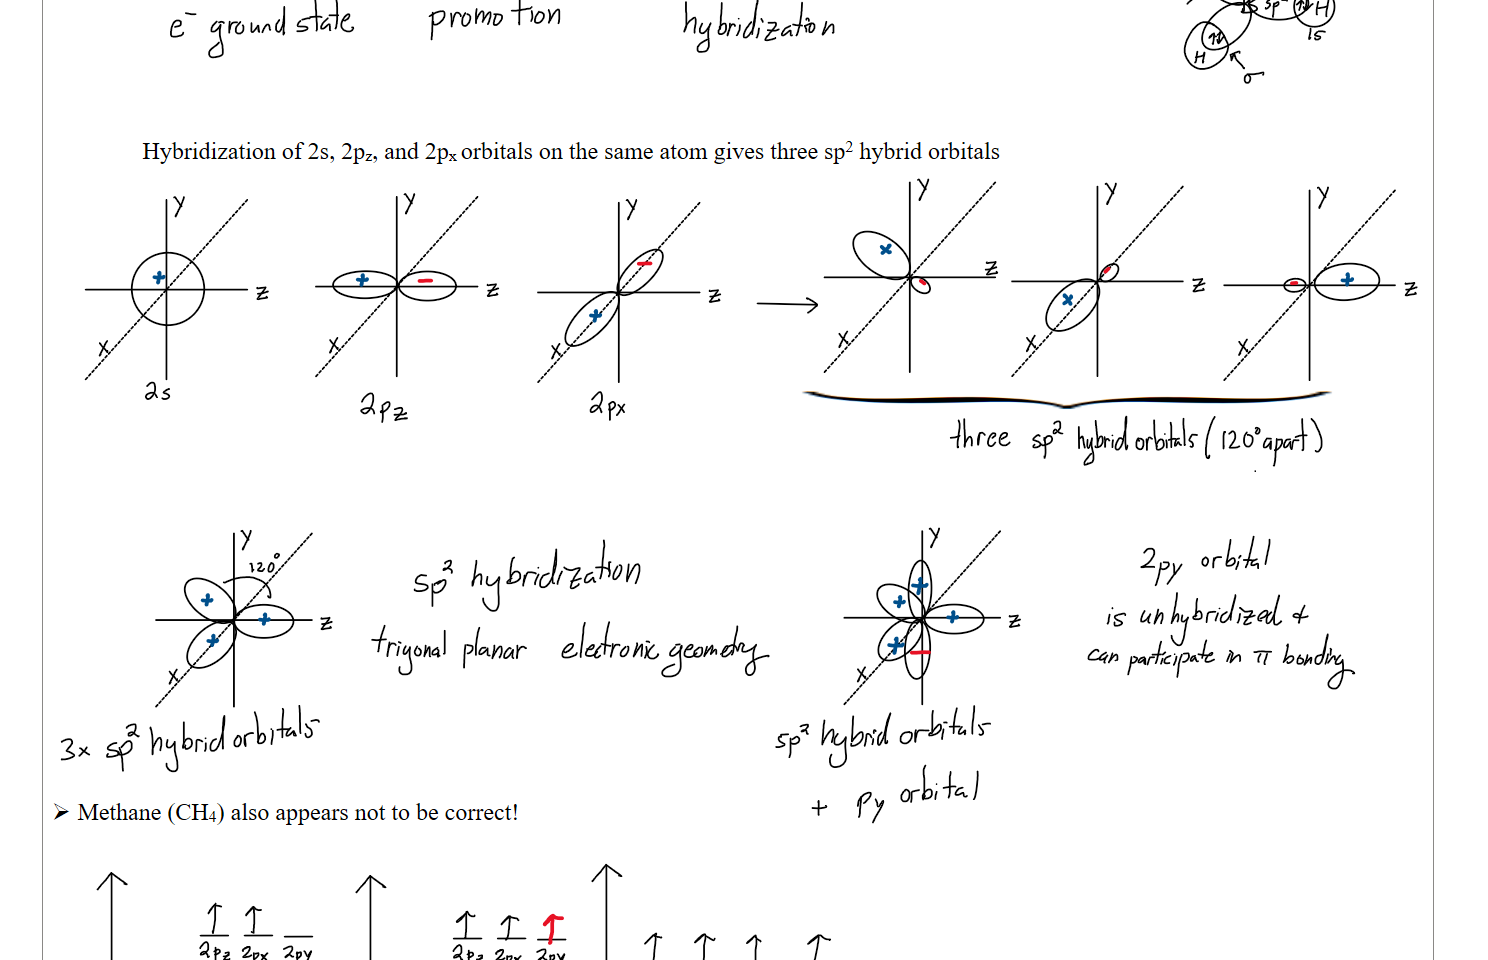 e⁻ ground state promotion hybridization
sp H
1s
H
σ
Hybridization of 2s, 2pz, and 2px orbitals on the same atom gives three sp² hybrid orbitals
y y y y y y
+ + − + − × − × − − +
z z z z z z
x x x x x x
2s 2pz 2px
three sp² hybrid orbitals (120° apart)
y 120°
+ + +
z
x
3x sp² hybrid orbitals
sp² hybridization
trigonal planar electronic geometry
y
+ + + + −
z
x
sp² hybrid orbitals
+ py orbital
2py orbital
is unhybridized &
can participate in π bonding
➤ Methane (CH₄) also appears not to be correct!
↑ ↑ ↑ ↑ ↑ ↑ ↑ ↑ ↑
2pz 2px 2py 2pz 2px 2py